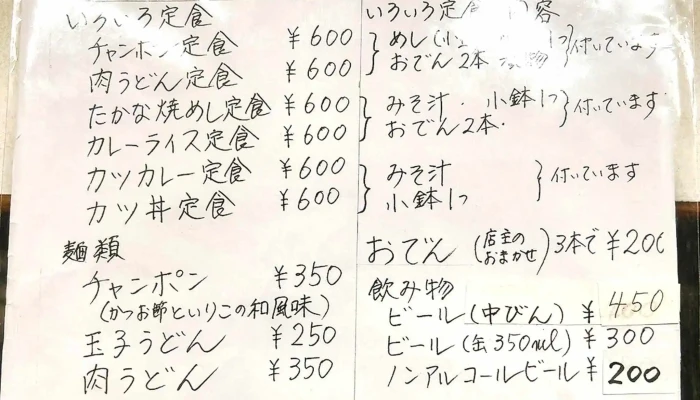 いろいろ定食
チャンポン定食 ¥600
肉うどん定食 ¥600
たかな焼めし定食 ¥600
カレーライス定食 ¥600
カツカレー定食 ¥600
カツ丼定食 ¥600
麺類
チャンポン ¥350
(かつお節といりこの和風味)
玉子うどん ¥250
肉うどん ¥350
いろいろ定食 内容
めし(小 1つ
おでん2本 漬物
付いています
みそ汁・小鉢1つ
おでん2本・
付いています
みそ汁
小鉢1つ
付いています
おでん (店主のおまかせ) 3本で ¥200
飲み物
ビール(中びん) ¥450
ビール(缶350ml) ¥300
ノンアルコールビール ¥200